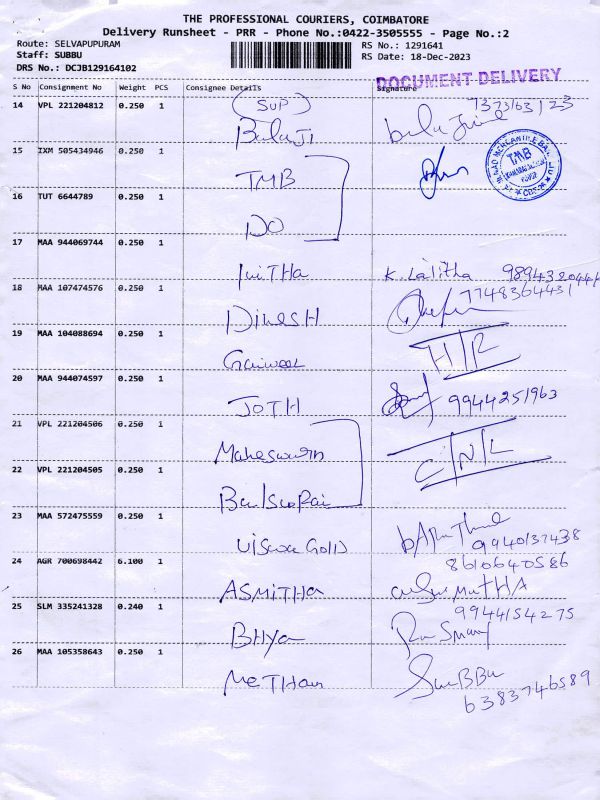 THE PROFESSIONAL COURIERS, COIMBATORE
Delivery Runsheet - PRR - Phone No.:0422-3505555 - Page No.:2
Route: SELVAPUPURAM
RS No.: 1291641
Staff: SUBBU
RS Date: 18-Dec-2023
DRS No.: DCJB129164102
DOCUMENT DELIVERY
S No Consignment No Weight PCS Consignee Details Signature
14 VPL 221204812 0.250 1 (SUP)
BalaJI
15 IXM 505434946 0.250 1
TMB
TMB
16 TUT 6644789 0.250 1
DO
17 MAA 944069744 0.250 1
K. Lalitha
18 MAA 107474576 0.250 1 7748364431
DINESH
19 MAA 104088694 0.250 1
20 MAA 944074597 0.250 1
JOTH 9944251963
21 VPL 221204506 0.250 1
Maheswarn C/N/L
22 VPL 221204505 0.250 1
23 MAA 572475559 0.250 1
Viswa GOLD 9940137438
24 AGR 700698442 6.100 1 8610640586
ASMITHA
25 SLM 335241328 0.240 1 9944154275
BHYa
26 MAA 105358643 0.250 1
SuBBu
6383746589